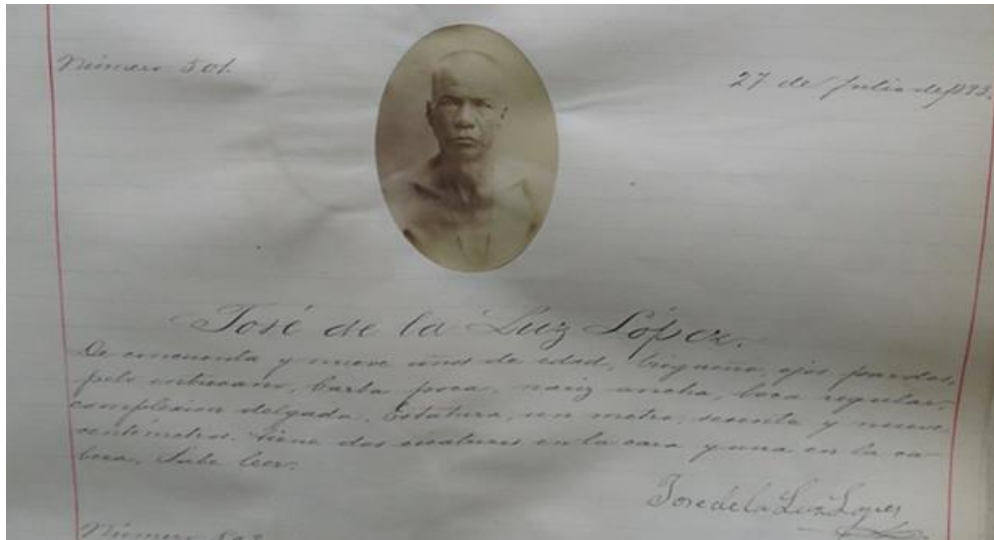 Número 501.
27 de Julio de 1893.
José de la Luz López.
De cincuenta y nueve años de edad, trigueño, ojos pardos,
pelo entrecano, barba poca, nariz ancha, boca regular,
complexion delgada. Estatura, un metro, sesenta y nueve
centímetros. Tiene dos cicatrices en la cara y una en la ca-
beza. Sabe leer.
Jose de la Luz Lopes
Número 502